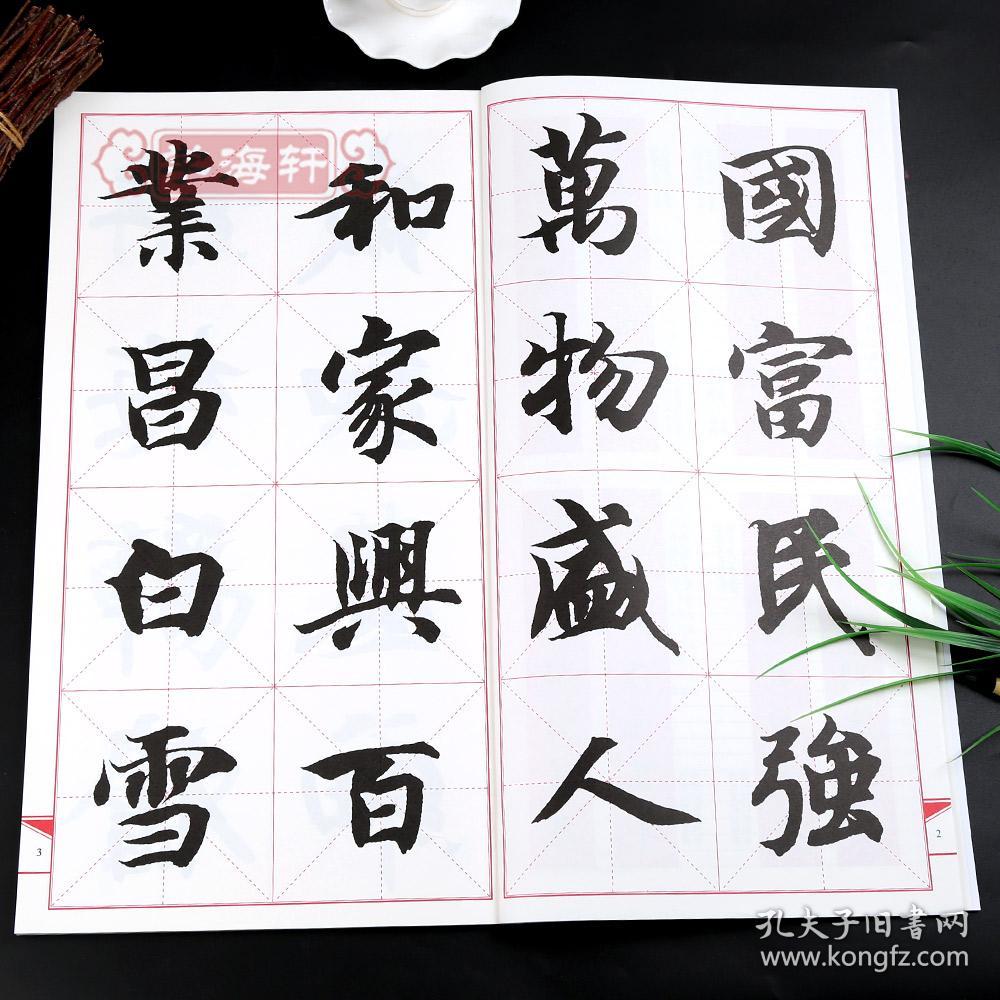 國富民強
萬物盛人
和家興百
業昌白雪
海轩
2
3
孔夫子旧書网
www.kongfz.com